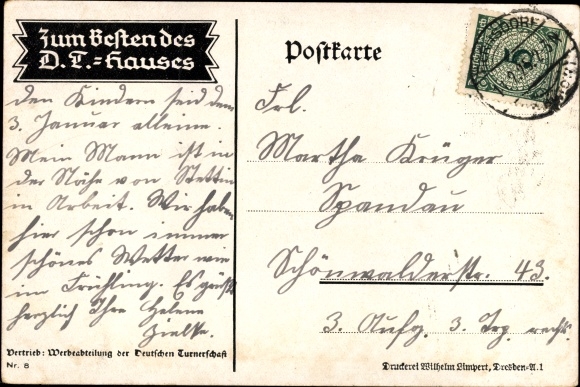 Zum Besten des
D. T.=Hauses
Postkarte
den Kindern seid dem
3. Januar alleine.
Mein Mann ist in
der Nähe von Stettin
in Arbeit. Wir haben
hier schon immer
schönes Wetter wie
im Frühling. Es grüßt
herzlich Ihre Helene
Frl.
Martha Krüger
Spandau
Schönwalderstr. 43.
3. Aufg. 3. Trp. rechts.
Vertrieb: Werbeabteilung der Deutschen Turnerschaft
Nr. 8
Druckerei Wilhelm Limpert, Dresden-A. 1
5